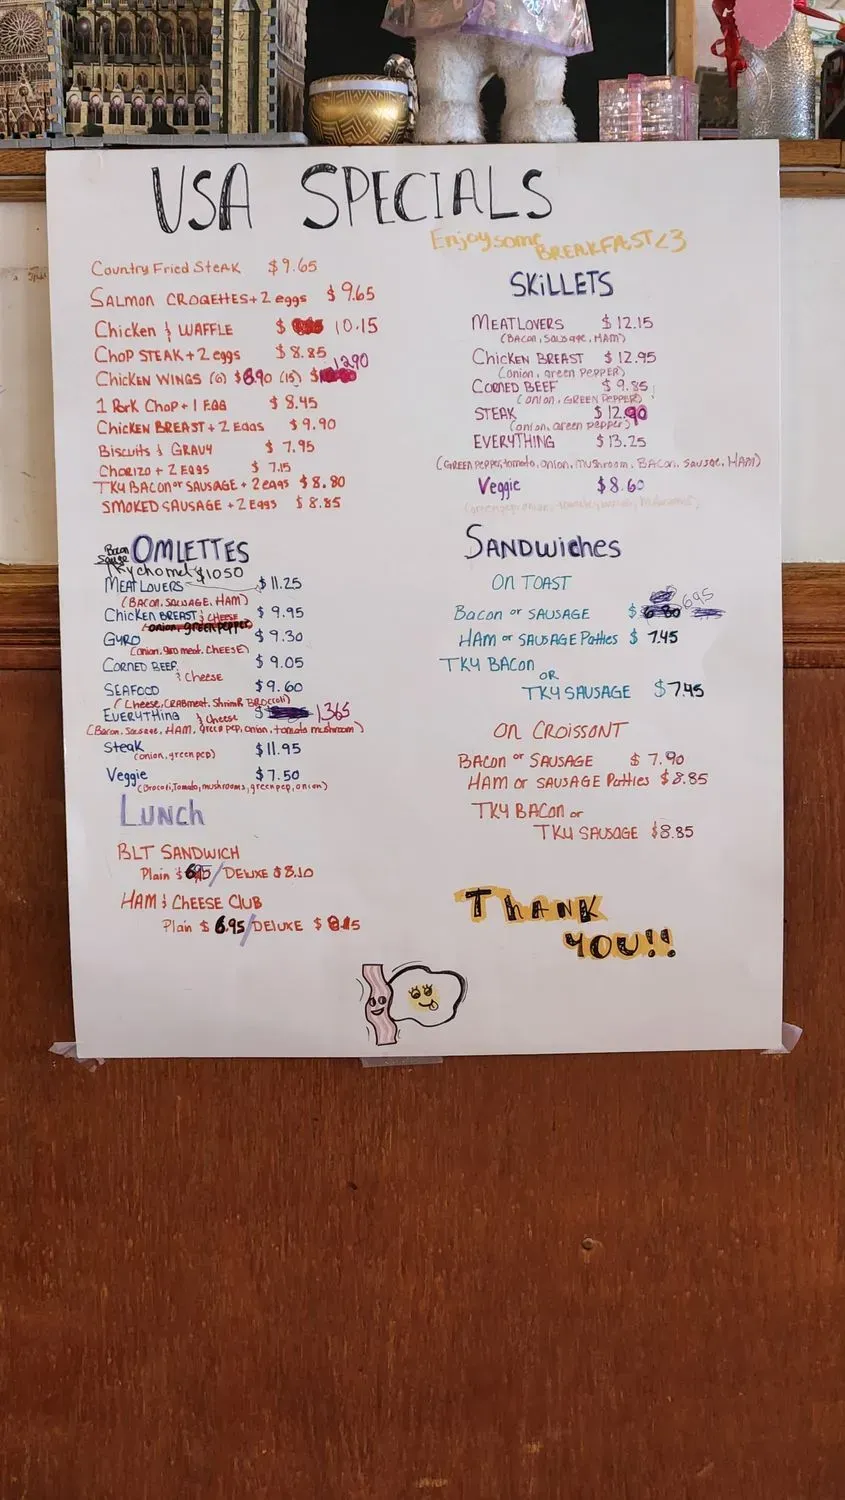 USA SPECIALS
Enjoy some BREAKFAST <3
Country Fried Steak $9.65
SALMON CROQETTES + 2 eggs $9.65
Chicken & WAFFLE $ 10.15
CHOP STEAK + 2 eggs $8.85
CHICKEN WINGS (6) $8.90 (15) $ 12.90
1 PORK CHOP + 1 EGG $8.45
CHICKEN BREAST + 2 EGGS $9.90
Biscuits & GRAVY $7.95
CHORIZO + 2 EGGS $7.15
TKY BACON or SAUSAGE + 2 eggs $8.80
SMOKED SAUSAGE + 2 EGGS $8.85
OMLETTES
$10.50
MEATLOVERS $11.25
(BACON, SAUSAGE, HAM)
Chicken BREAST & CHEESE $9.95
onion, green pepper
GYRO $9.30
(onion, gyro meat, CHEESE)
CORNED BEEF $9.05
& Cheese
SEAFOOD $9.60
(Cheese, CRABmeat, Shrimp, BROCcoli)
EVERYTHING & Cheese $ 1365
(Bacon, Sausage, HAM, green pep, onion, tomato mushroom)
Steak $11.95
(onion, green pep)
Veggie $7.50
(Brocoti, Tomato, mushrooms, green pep, onion)
LUNCH
BLT SANDWICH
Plain $6.95 / DELUXE $8.10
HAM & CHEESE CLUB
Plain $6.95 / DELUXE $8.15
SKILLETS
MEATLOVERS $12.15
(BACON, SAUSAGE, HAM)
CHICKEN BREAST $12.95
(onion, green PEPPER)
CORNED BEEF $9.85
(ONION, GREEN PEPPER)
STEAK $12.90
(onion, green pepper)
EVERYTHING $13.25
(GREEN PEPPER, tomato, onion, mushroom, BACON, sausage, HAM)
Veggie $8.60
SANDWICHES
ON TOAST
Bacon or SAUSAGE $ 695
HAM or SAUSAGE Patties $ 7.45
TKY BACON
OR
TKY SAUSAGE $7.45
ON CROISSONT
BACON or SAUSAGE $7.90
HAM or SAUSAGE Patties $8.85
TKY BACON or
TKY SAUSAGE $8.85
THANK
YOU!!